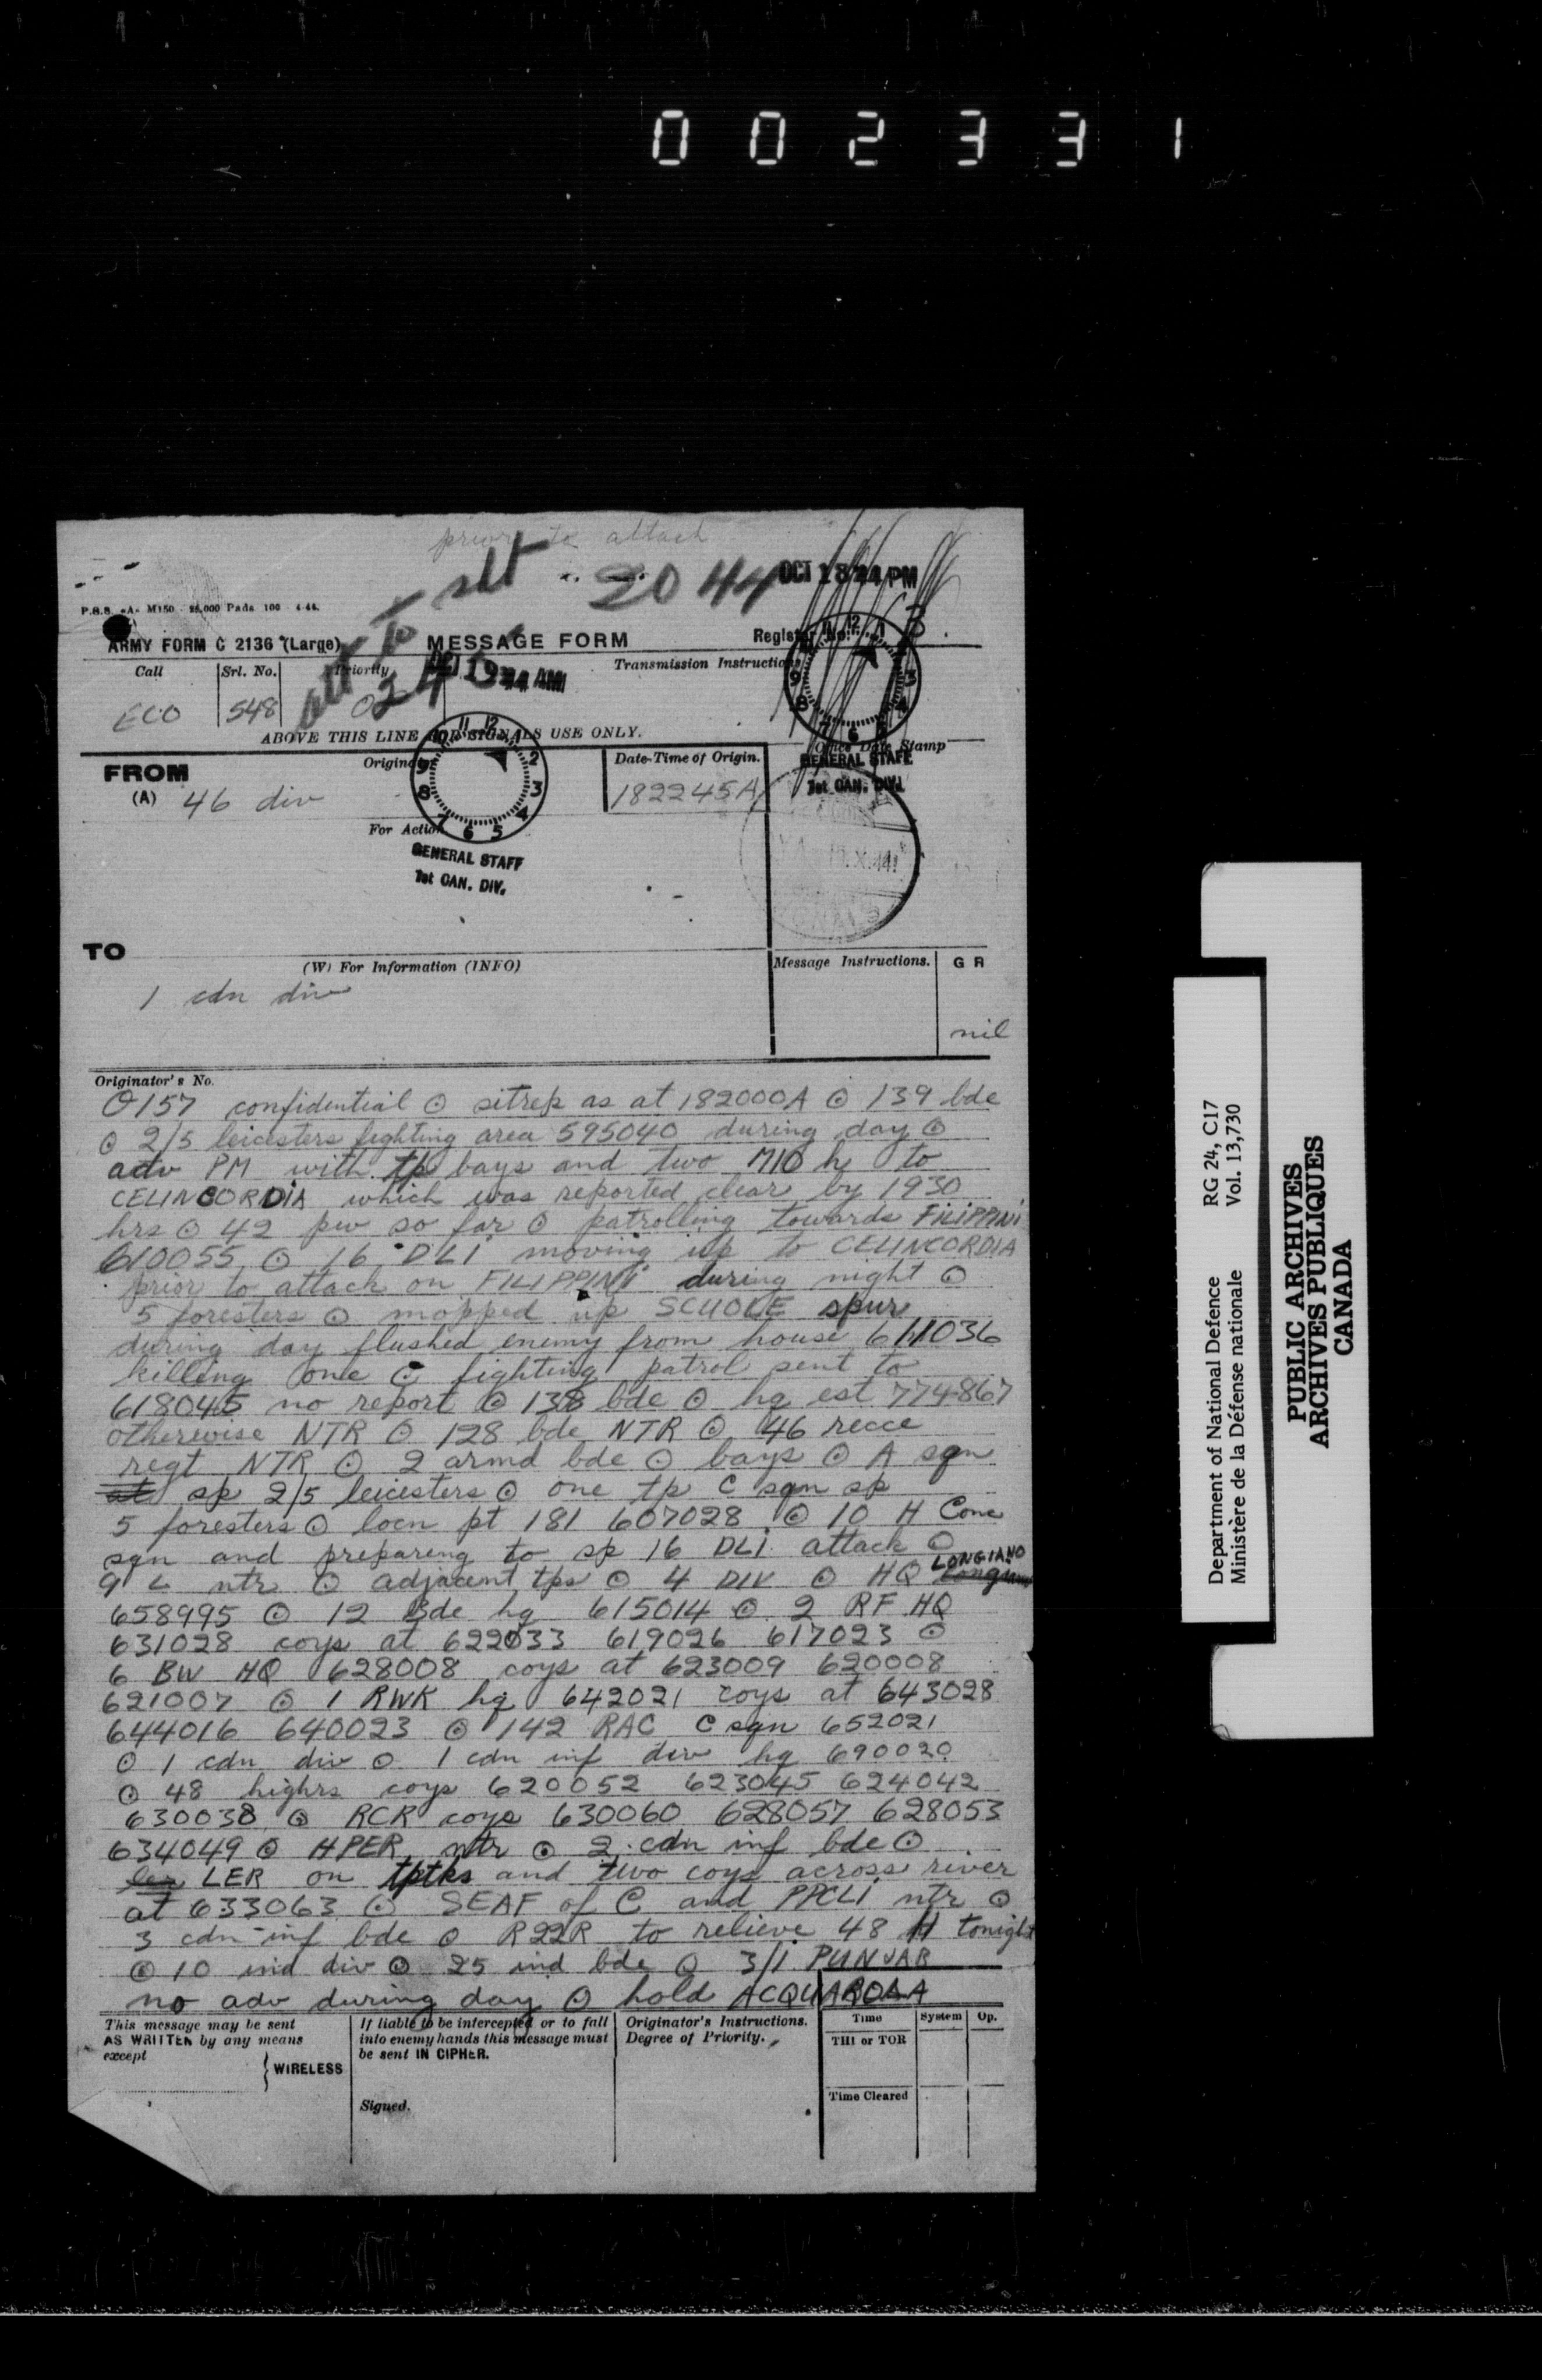 002331
prior to attack
alt to slt
2044
OCT 18 '44 PM
P.S.S. -A- M150 - 25,000 Pads 100 4-44.
ARMY FORM C 2136 (Large)
MESSAGE FORM
Register No.
Call
Srl. No.
Priority
OCT 19 '44 AM
Transmission Instructions
ECO
548
ABOVE THIS LINE FOR SIGNALS USE ONLY.
Office Date Stamp
GENERAL STAFF
1st CAN. DIV.
FROM
(A)
Originator
46 div
Date-Time of Origin.
182245A
For Action
GENERAL STAFF
1st CAN. DIV.
TO
(W) For Information (INFO)
Message Instructions.
G R
1 cdn div
nil
Originator's No.
O157 confidential ⊙ sitrep as at 182000A ⊙ 139 bde
⊙ 2/5 leicesters fighting area 595040 during day ⊙
adv PM with tp bays and two M10 to
CELINCORDIA which was reported clear by 1930
hrs ⊙ 42 pw so far ⊙ patrolling towards FILIPPINI
610055 ⊙ 16 DLI moving up to CELINCORDIA
prior to attack on FILIPPINI during night ⊙
5 foresters ⊙ mopped up SCUOLE spur
during day flushed enemy from house 611036
killing one ⊙ fighting patrol sent to
618045 no report ⊙ 138 bde ⊙ hq est 774867
otherwise NTR ⊙ 128 bde NTR ⊙ 46 recce
regt NTR ⊙ 2 armd bde ⊙ bays ⊙ A sqn
sp 2/5 leicesters ⊙ one tp C sqn sp
5 foresters ⊙ locn pt 181 607028 ⊙ 10 H Conc
sqn and preparing to sp 16 DLI attack ⊙
9 L ntr ⊙ adjacent tps ⊙ 4 DIV ⊙ HQ LONGIANO
658995 ⊙ 12 Bde hq 615014 ⊙ 2 RF HQ
631028 coys at 622033 619026 617023 ⊙
6 BW HQ 628008 coys at 623009 620008
621007 ⊙ 1 RWK hq 642021 coys at 643028
644016 640023 ⊙ 142 RAC C sqn 652021
⊙ 1 cdn div ⊙ 1 cdn inf div hq 690020
⊙ 48 highrs coys 620052 623045 624042
630038 ⊙ RCR coys 630060 628057 628053
634049 ⊙ HPER ntr ⊙ 2 cdn inf bde ⊙
LER on tptks and two coys across river
at 633063 ⊙ SEAF of C and PPCLI ntr ⊙
3 cdn inf bde ⊙ R22R to relieve 48 H tonight
⊙ 10 ind div ⊙ 25 ind bde ⊙ 3/1 PUNJAB
no adv during day ⊙ hold ACQUAROLA
This message may be sent
AS WRITTEN by any means
except
WIRELESS
If liable to be intercepted or to fall
into enemy hands this message must
be sent IN CIPHER.
Signed.
Originator's Instructions.
Degree of Priority.
Time
System
Op.
THI or TOR
Time Cleared
Department of National Defence RG 24, C17
Ministère de la Défense nationale Vol. 13,730
PUBLIC ARCHIVES
ARCHIVES PUBLIQUES
CANADA